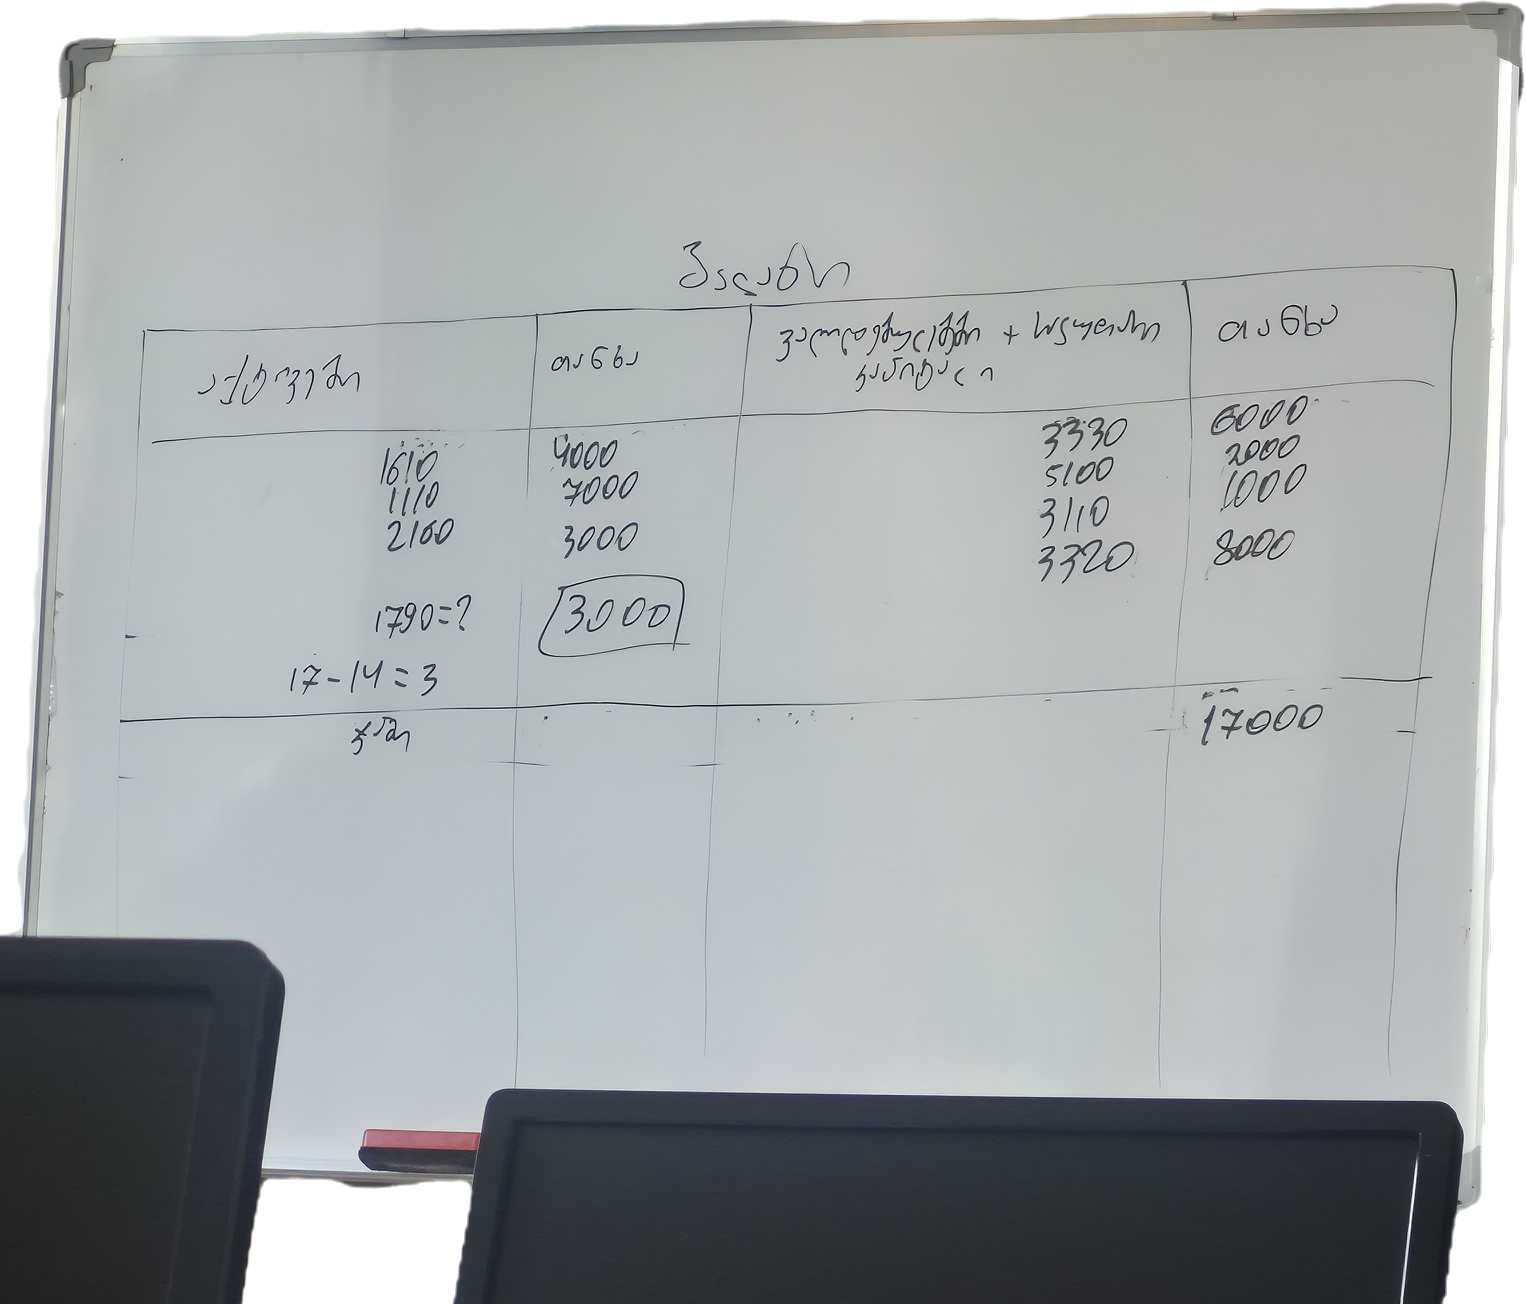 ბალანსი
აქტივები თანხა ვალდებულებები + საკუთარი კაპიტალი თანხა
1610 4000 3330 6000
1110 7000 5100 2000
2160 3000 3110 1000
3320 8000
1790=? 3000
17-14=3
ჯამი 17000